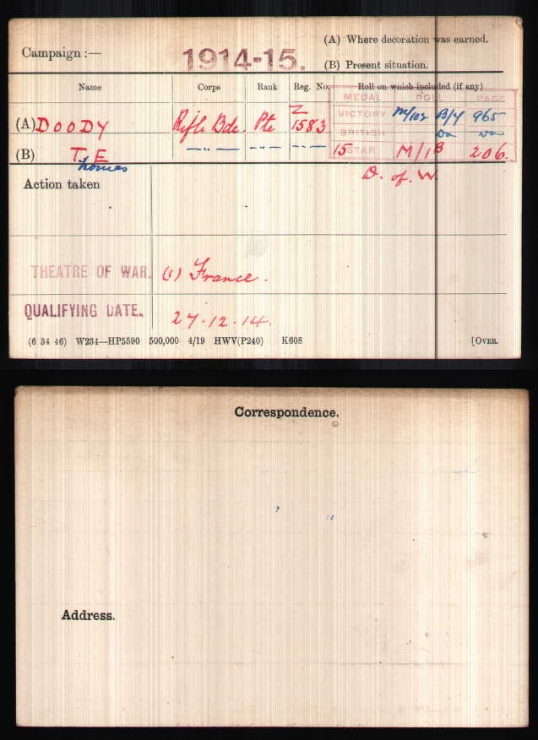 (A) Where decoration was earned.
Campaign :— 1914-15.
(B) Present situation.
Name Corps Rank Reg. No. Roll on which included (if any)
MEDAL ROLL PAGE
(A) DOODY Rifle Bde. Pte Z 1583 VICTORY M/102 B/4 965
BRITISH Do Do
(B) T. E —"— —"— —"— 15 STAR M/1B 206.
Thomas
Action taken D. of W.
THEATRE OF WAR. (1) France.
QUALIFYING DATE. 27.12.14.
(6 34 46) W234—HP5590 500,000 4/19 HWV(P240) K608 [OVER.
Correspondence.
Address.